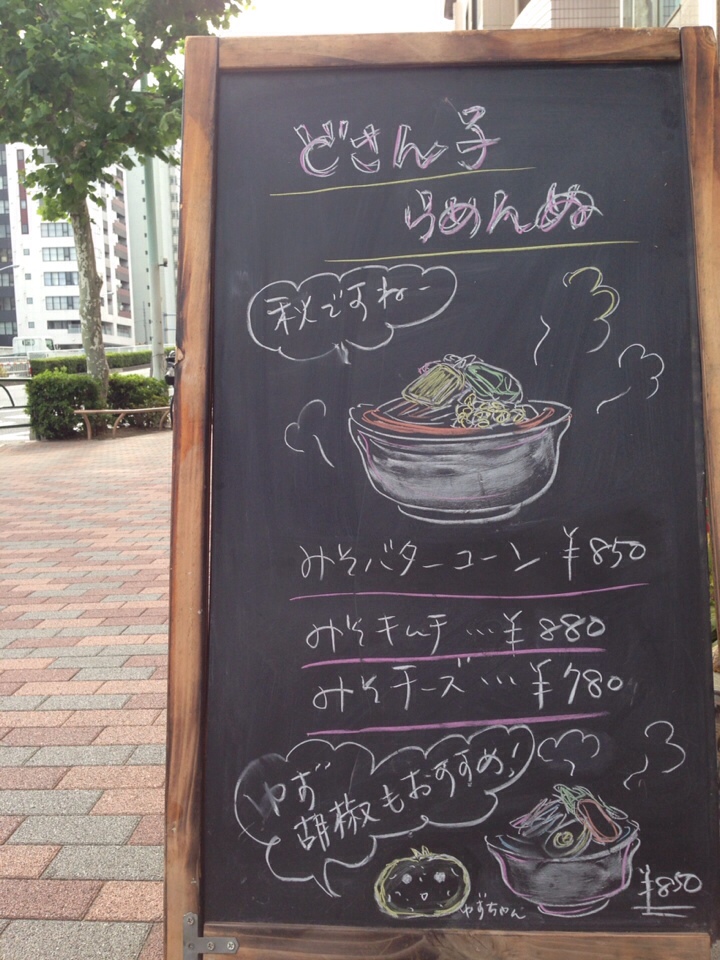 どさん子
らめんぬ
秋ですねー
みそバターコーン ¥850
みそキムチ…¥880
みそチーズ…¥780
ゆず
胡椒もおすすめ!
ゆずちゃん
¥850